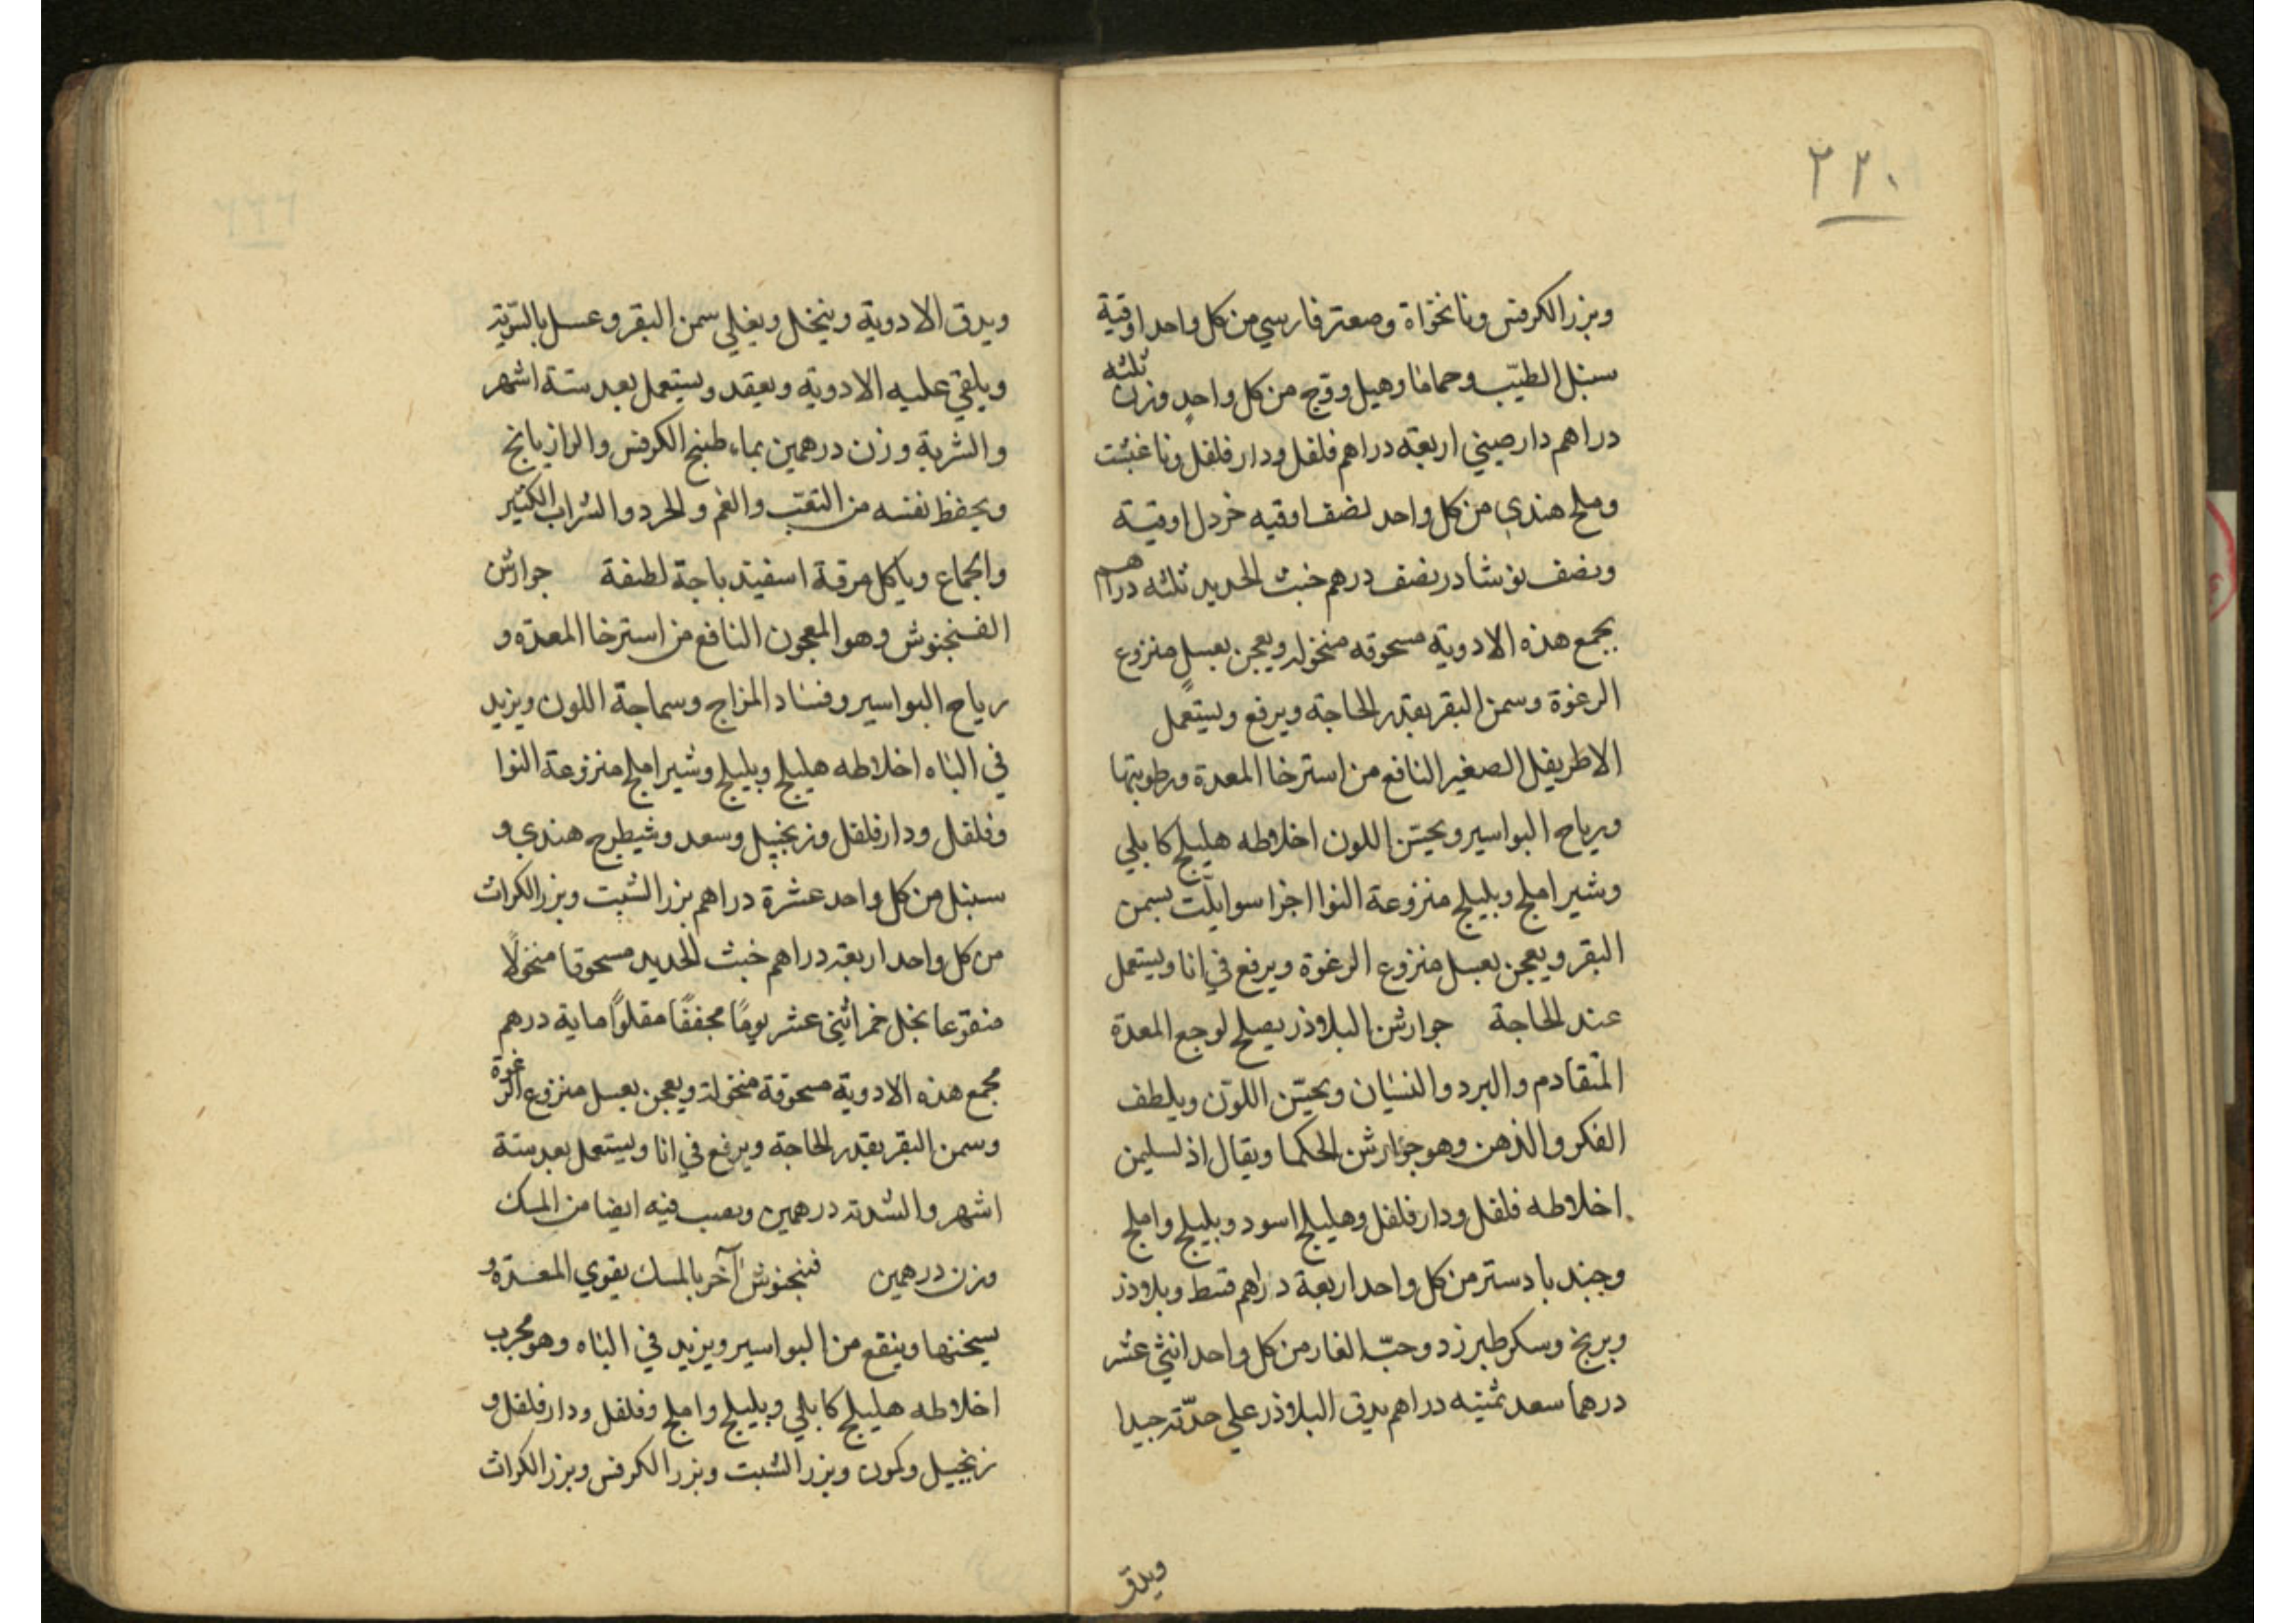 ٢٢٠
وبزر الكرفس ونانخواة وصعتر فارسي من كل واحد اوقية
سنبل الطيّب وحماما وهيل ووج من كل واحدٍ وزن ثلثه
دراهم دارصيني اربعة دراهم فلفل ودارفلفل وناغبشت
وملح هندي من كل واحد نصف اوقيه خردل اوقية
ونصف نوشادر نصف درهم خبث الحديد ثلثه دراهم
يجمع هذه الادوية مسحوقه منخوله ويعجن بعسلٍ منزوع
الرغوة وسمن البقر بقدر الحاجة ويرفع ويستعمل
الاطريفل الصغير النافع من استرخا المعدة ورطوبتها
ورياح البواسير ويحسّن اللون اخلاطه هليلج كابلي
وشير املج وبليلج منزوعة النوا اجزا سوا يلتّ بسمن
البقر ويعجن بعسل منزوع الرغوة ويرفع في انا ويستعمل
عند الحاجة جوارشن البلاوذر يصلح لوجع المعدة
المتقادم والبرد والنسيان ويحسّن اللون ويلطف
الفكر والذهن وهو جوارشن الحكما ويقال اذ لسليمن
اخلاطه فلفل ودارفلفل وهليلج اسود وبليلج واملج
وجندبادستر من كل واحد اربعة دراهم قسط وبلاوذر
وبرنج وسكر طبرزد وحبّ الغار من كل واحد اثني عشر
درهما سعد ثمنيه دراهم يدق البلاوذر علي حدّته جيدا
ويدق
ويدق الادوية وينخل ويغلي سمن البقر وعسل بالسّويّة
ويلقي عليه الادوية ويعقد ويستعمل بعد ستة اشهر
والشربة وزن درهمين بماء طبيخ الكرفس والرازيانج
ويحفظ نفسه من التعب والغم والحرد والشراب الكثير
والجماع وياكل مرقة اسفيذباجة لطيفة جوارشن
الفنجنوش وهو المعجون النافع من استرخا المعدة و
رياح البواسير وفساد المزاج وسماجة اللون ويزيد
في الباه اخلاطه هليلج وبليلج وشير املج منزوعة النوا
وفلفل ودارفلفل وزنجبيل وسعد وشيطرج هندي و
سنبل من كل واحد عشرة دراهم بزر الشبت وبزر الكراث
من كل واحد اربعة دراهم خبث الحديد مسحوقا منخولًا
منقوعا بخل خمر اثني عشر يومًا مجففًا مقلوًا ماية درهم
مجمع هذه الادوية مسحوقة منخولة ويعجن بعسل منزوع الرغوة
وسمن البقر بقدر الحاجة ويرفع في انا ويستعمل بعد ستة
اشهر والشربة درهمين ويصب فيه ايضا من المسك
وزن درهمين فنجنوش آخر بالمسك يقوي المعدة و
يسخنها وينقع من البواسير ويزيد في الباه وهو مجرب
اخلاطه هليلج كابلي وبليلج واملج وفلفل ودارفلفل و
زنجبيل وكمون وبزر الشبت وبزر الكرفس وبزر الكراث